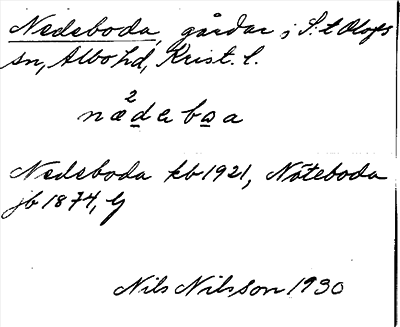 Nedeboda, gårdar i S:t Olofs
sn, Albo hd, Krist. l.
2
nædeboa
Nedeboda kb 1921, Nöteboda
jb 1874, Lj
Nils Nilsson 1930